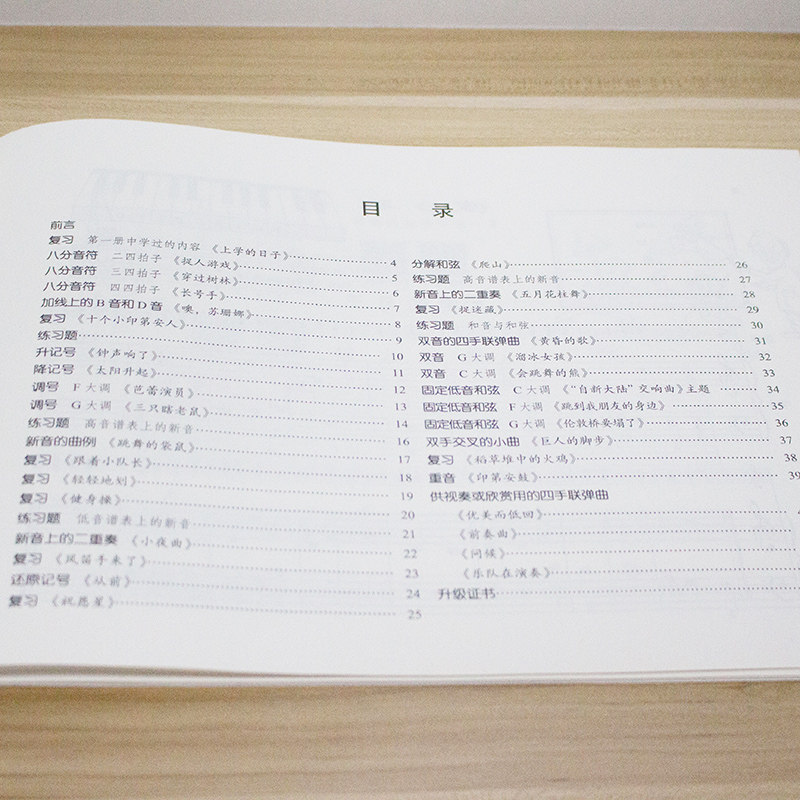 目 录
前言
复习 第一册中学过的内容 《上学的日子》 4
八分音符 二四拍子 《捉人游戏》 5
八分音符 三四拍子 《穿过树林》 6
八分音符 四四拍子 《长号手》 7
加线上的B音和D音 《噢，苏珊娜》 8
复习 《十个小印第安人》 9
练习题 10
升记号 《钟声响了》 11
降记号 《太阳升起》 12
调号 F大调 《芭蕾演员》 13
调号 G大调 《三只瞎老鼠》 14
练习题 高音谱表上的新音 16
新音的曲例 《跳舞的袋鼠》 17
复习 《跟着小队长》 18
复习 《轻轻地划》 19
复习 《健身操》 20
练习题 低音谱表上的新音 21
新音上的二重奏 《小夜曲》 22
复习 《风笛手来了》 23
还原记号 《从前》 24
复习 《祝愿星》 25
分解和弦 《爬山》 26
练习题 高音谱表上的新音 27
新音上的二重奏 《五月花柱舞》 28
复习 《捉迷藏》 29
练习题 和音与和弦 30
双音的四手联弹曲 《黄昏的歌》 31
双音 G大调 《溜冰女孩》 32
双音 C大调 《会跳舞的熊》 33
固定低音和弦 C大调 《“自新大陆”交响曲》主题 34
固定低音和弦 F大调 《跳到我朋友的身边》 35
固定低音和弦 G大调 《伦敦桥要塌了》 36
双手交叉的小曲 《巨人的脚步》 37
复习 《稻草堆中的火鸡》 38
重音 《印第安鼓》 39
供视奏或欣赏用的四手联弹曲
《优美而低回》
《前奏曲》
《问候》
《乐队在演奏》
升级证书